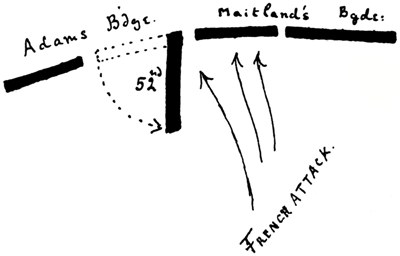 Adams Bdge.
Maitland's Bgde:
52nd
FRENCH ATTACK.